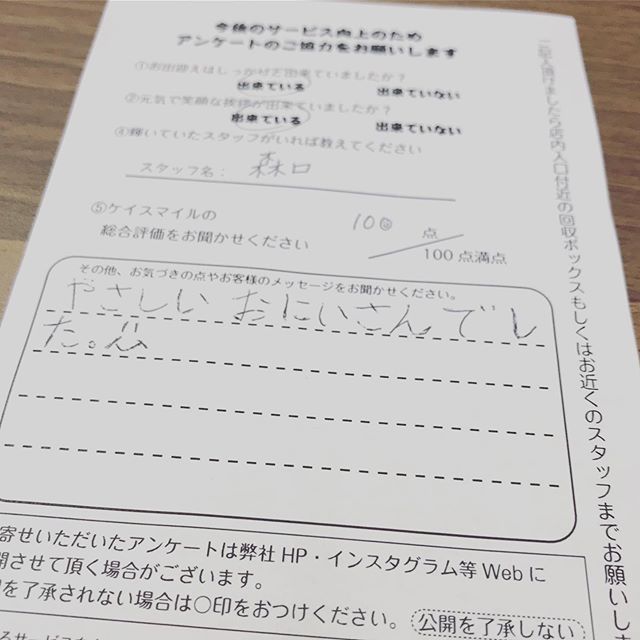 今後のサービス向上のため
アンケートのご協力をお願いします
①お出迎えはしっかりと出来ていましたか？
出来ている 出来ていない
②元気で笑顔な挨拶が出来ていましたか？
出来ている 出来ていない
④輝いていたスタッフがいれば教えてください
スタッフ名： 森口
⑤ケイスマイルの
総合評価をお聞かせください
100 点
100点満点
その他、お気づきの点やお客様のメッセージをお聞かせください。
やさしい おにいさんでし
た。
寄せいただいたアンケートは弊社HP・インスタグラム等Webに
開させて頂く場合がございます。
を了承されない場合は〇印をおつけください。 公開を了承しない
ご記入頂けましたら店内入口付近の回収ボックスもしくはお近くのスタッフまでお願いし